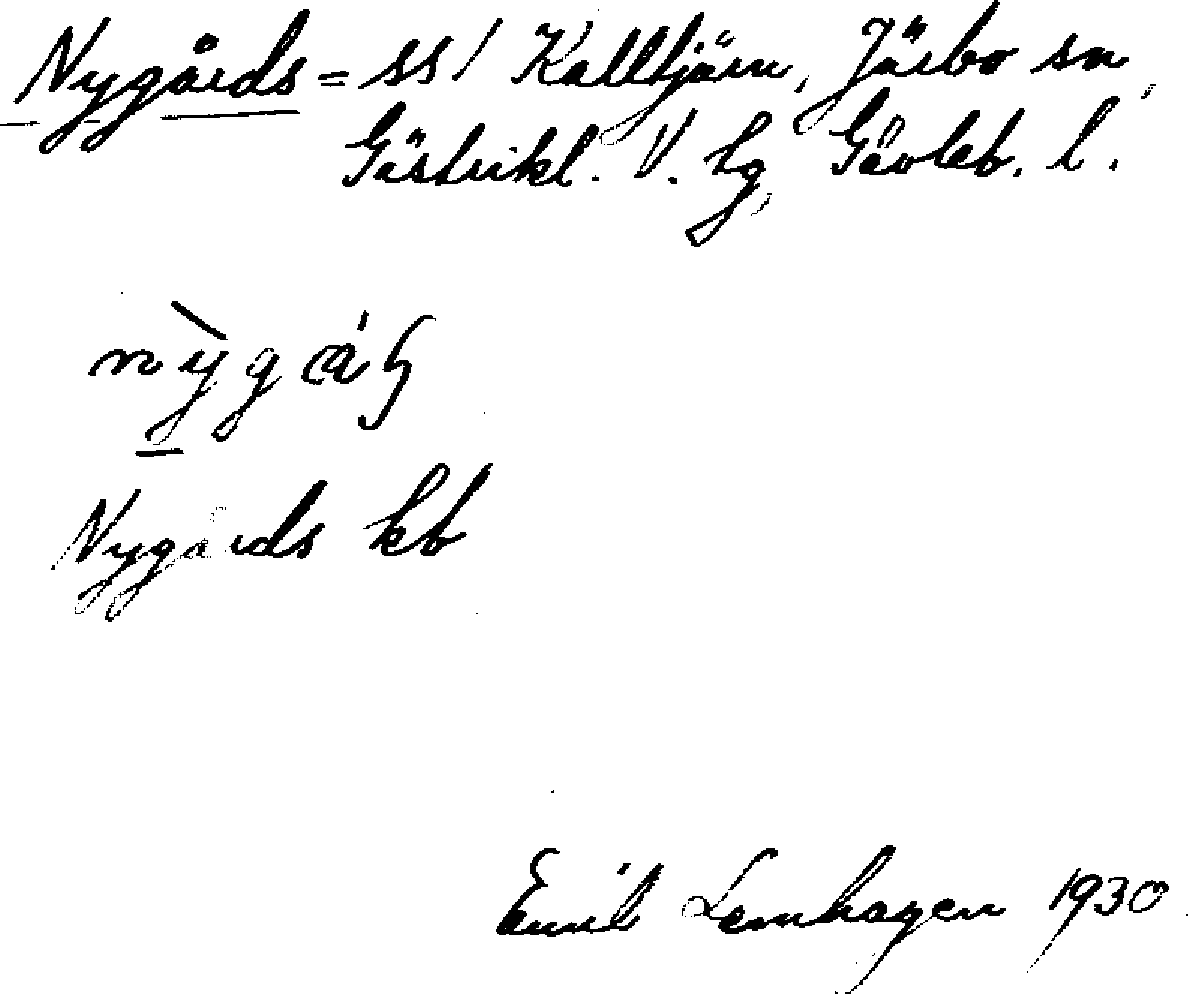 Nygårds = ss / Kalltjärn, Järbo sn,
Gästrikl. V. tg, Gävleb. l.
Nygårds kb
Emil Lemhagen 1930